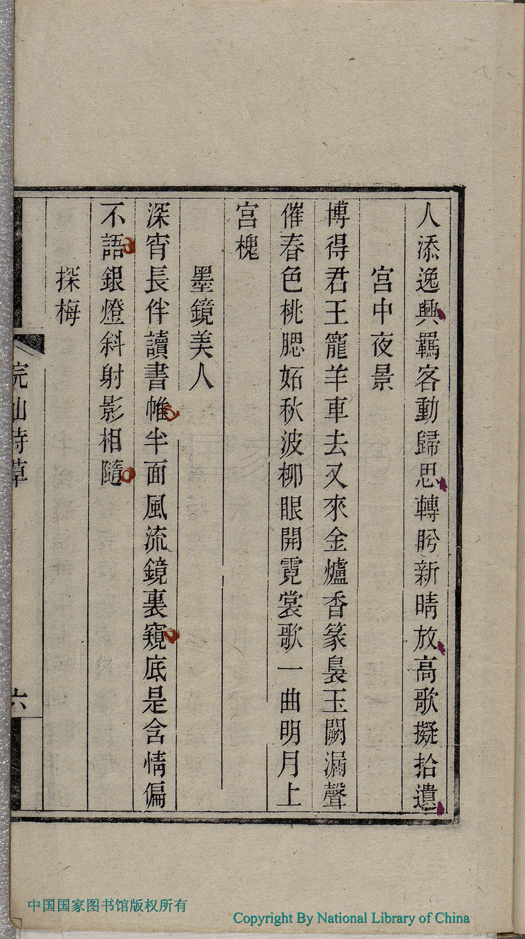 人添逸興羈客動歸思轉盻新晴放高歌擬拾遺
宮中夜景
博得君王寵羊車去又來金爐香篆裊玉闕漏聲
催春色桃腮妬秋波柳眼開霓裳歌一曲明月上
宮槐
墨鏡美人
深宵長伴讀書帷半面風流鏡裏窺底是含情偏
不語銀燈斜射影相隨
探梅
仙詩草
六
中国国家图书馆版权所有
Copyright By National Library of China